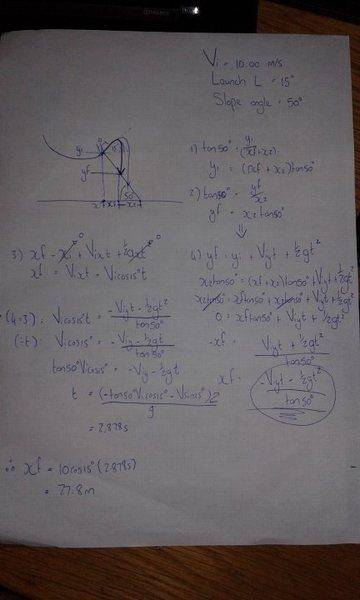 Vi = 10.00 m/s
Launch L = 15°
Slope angle = 50°
y1
yf
15°
50°
x1 xf x2
1) tan50° = y1/(xf+x2)
y1 = (xf + x2)tan50°
2) tan50° = yf/x2
yf = x2tan50°
⇓
3) xf = x1 + Vixt + ½gxt² 0
xf = Vixt = Vicos15°t
4) yf = yi + Viyt + ½gt²
x2tan50° = (xf+x2)tan50° + Viyt + ½gt²
x2tan50° = xftan50° + x2tan50° + Viyt + ½gt²
0 = xftan50° + Viyt + ½gt²
-xf = Viyt + ½gt² / tan50°
xf = -Viyt - ½gt² / tan50°
(4=3): Vicos15°t = -Viyt - ½gt² / tan50°
(÷t): Vicos15° = -Viy - ½gt / tan50°
tan50°Vicos15° = -Viy - ½gt
t = (-tan50°Vicos15° - Visin15°)2 / g
= 2.878s
∴ xf = 10cos15°(2.878s)
= 27.8m